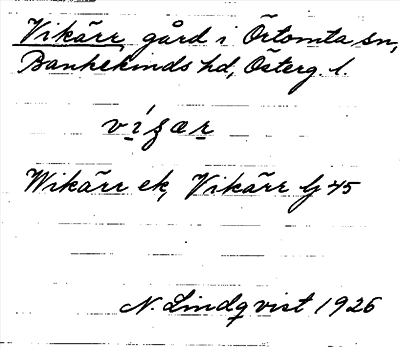 Vikärr, gård i Örtomta sn,
Bankekinds hd, Österg. l.
Wikärr ek, Vikärr Gj 45
N. Lindqvist 1926